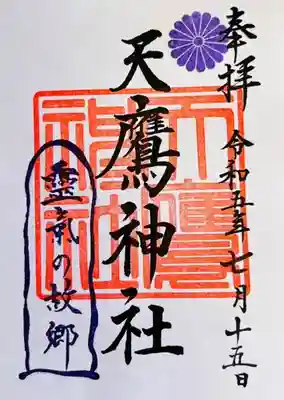 奉拝 令和五年 七月十五日
天鷹神社
霊氣の故郷
天鷹
神社